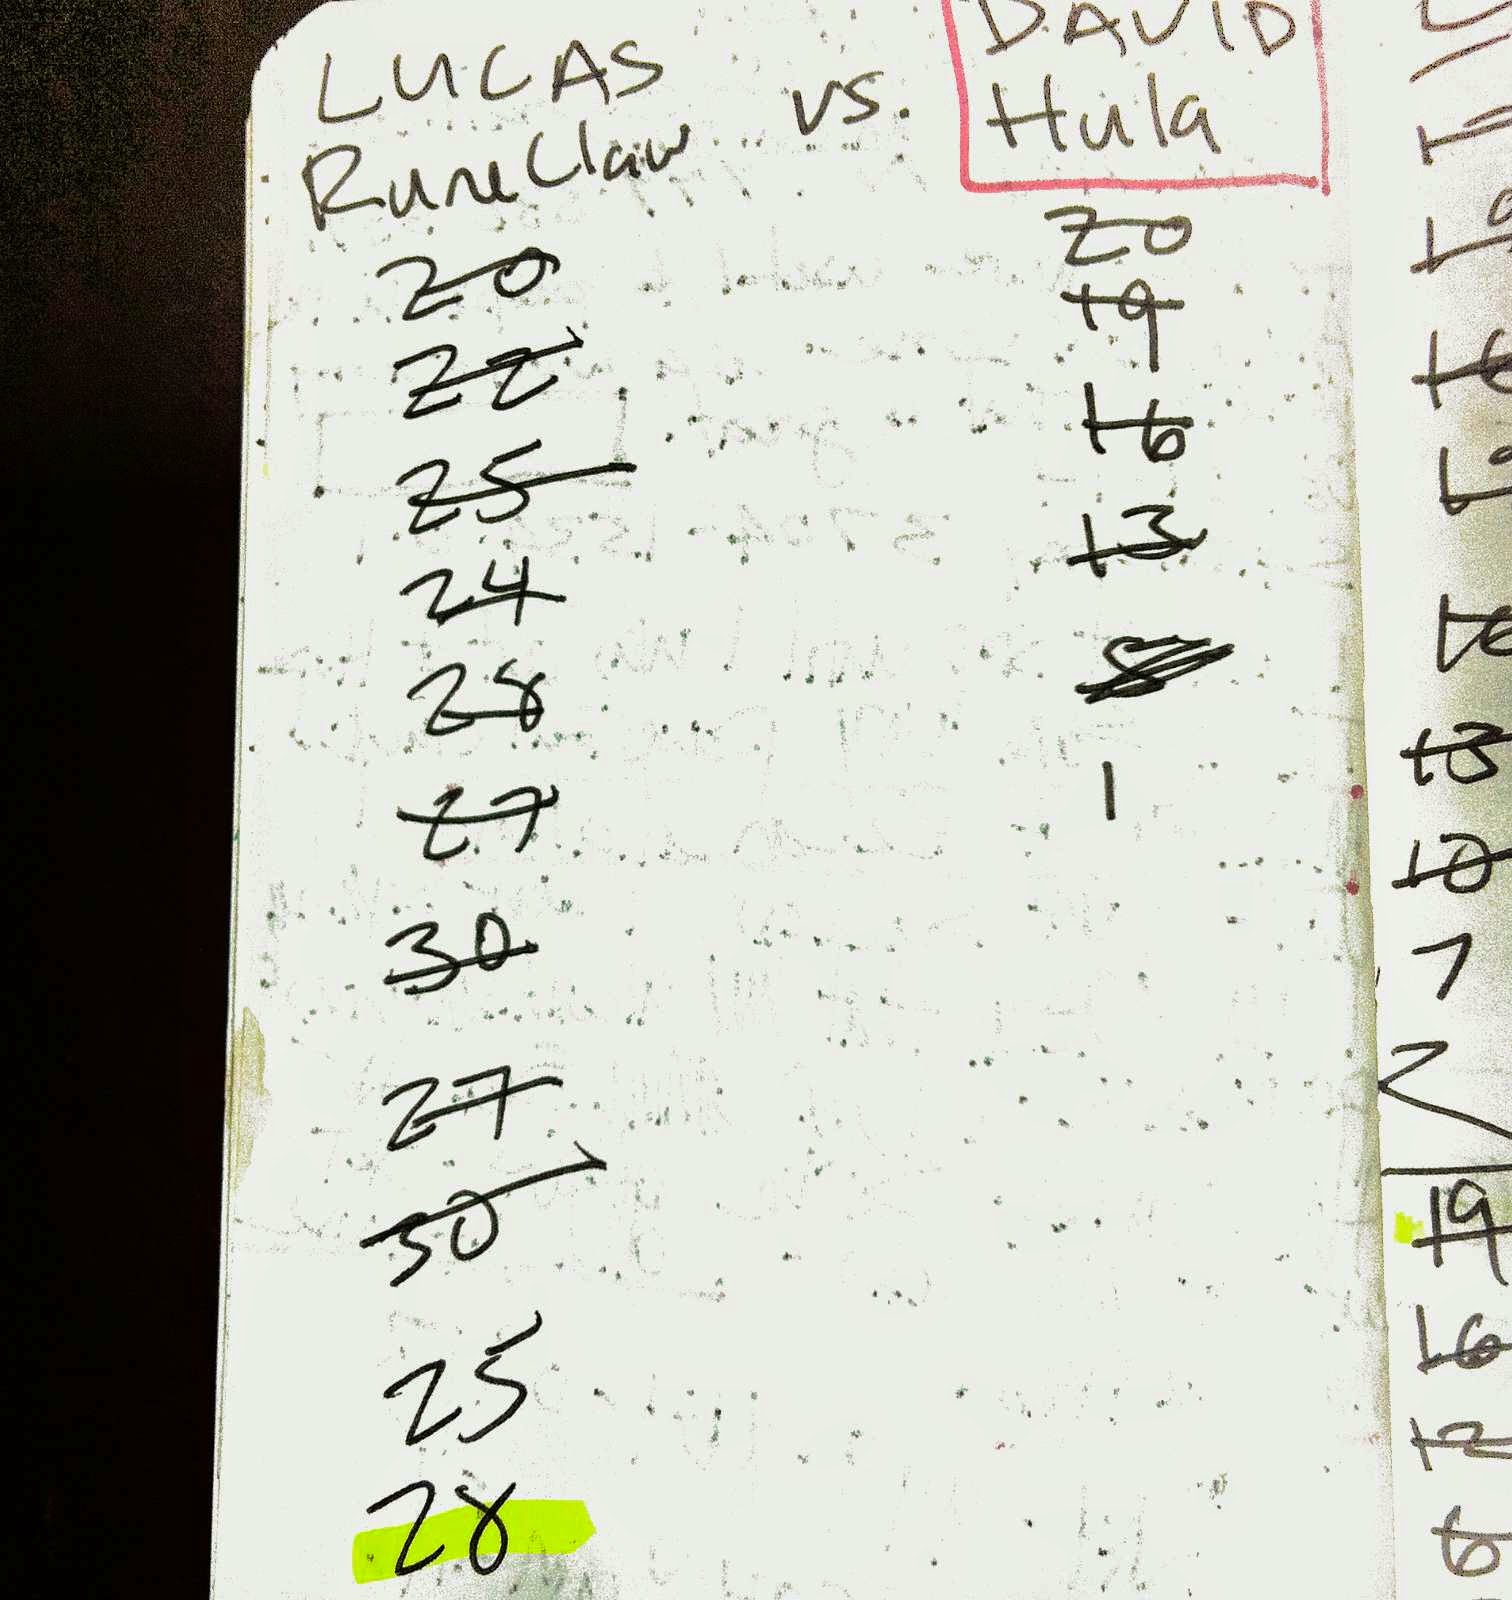 LUCAS
RuneClaw
vs.
DAVID
Hula
20
22
25
24
28
27
30
27
30
25
28
20
19
16
13
8
1
19
16
13
10
7
2
19
16
12
6